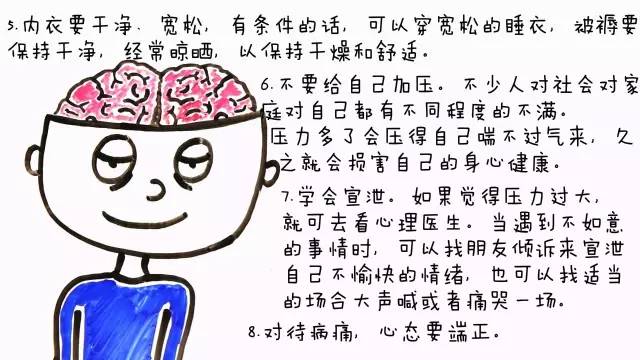 5.内衣要干净、宽松，有条件的话，可以穿宽松的睡衣，被褥要
保持干净，经常晾晒，以保持干燥和舒适。
6.不要给自己加压。不少人对社会对家
庭对自己都有不同程度的不满。
压力多了会压得自己喘不过气来，久
之就会损害自己的身心健康。
7.学会宣泄。如果觉得压力过大，
就可去看心理医生。当遇到不如意
的事情时，可以找朋友倾诉来宣泄
自己不愉快的情绪，也可以找适当
的场合大声喊或者痛哭一场。
8.对待病痛，心态要端正。